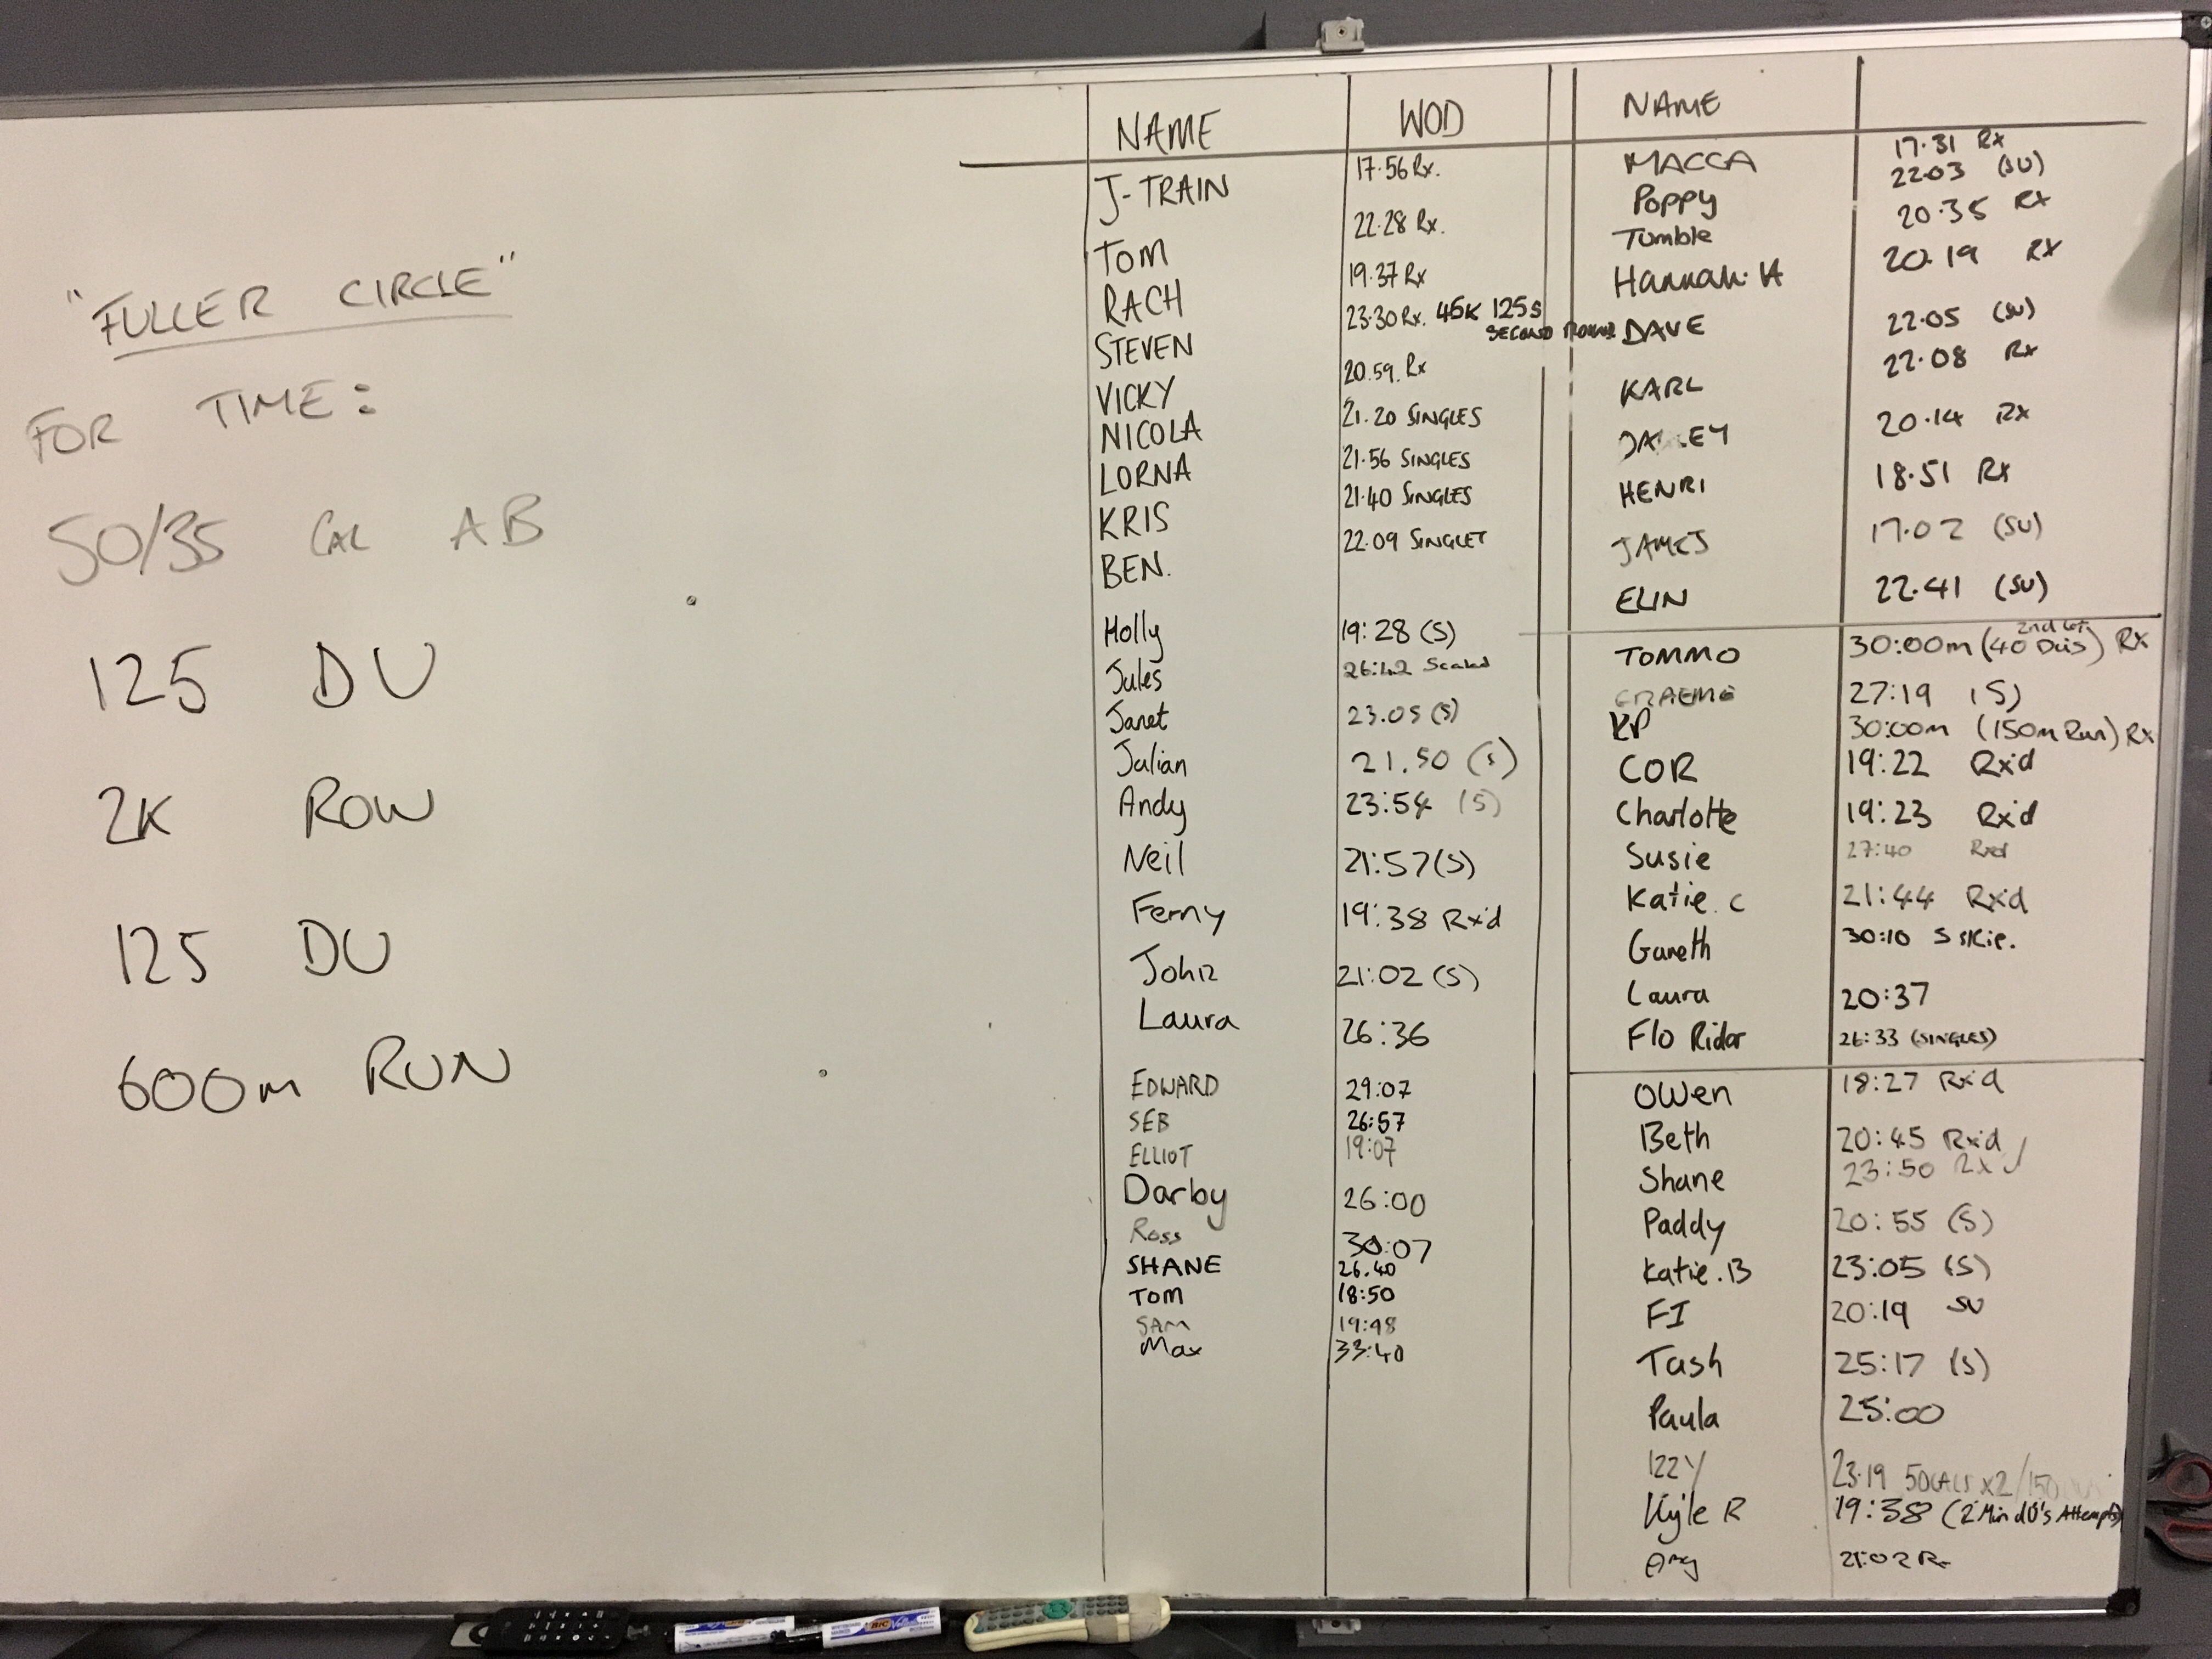 "FULLER CIRCLE"
FOR TIME:
50/35 CAL AB
125 DU
2K ROW
125 DU
600m RUN
NAME WOD
J-TRAIN 17.56 Rx.
TOM 22.28 Rx.
RACH 19.37 Rx
STEVEN 23.30 Rx. 45K 125s
SECOND ROUND
VICKY 20.59. Rx
NICOLA 21.20 SINGLES
LORNA 21.56 SINGLES
KRIS 21.40 SINGLES
BEN. 22.09 SINGLET
Holly 19:28 (S)
Jules 26:42 Scaled
Janet 23.05 (S)
Julian 21.50 (S)
Andy 23:54 (S)
Neil 21:57 (S)
Ferny 19:38 Rx'd
John 21:02 (S)
Laura 26:36
EDWARD 29:07
SEB 26:57
ELLIOT 19:07
Darby 26:00
Ross 30:07
SHANE 26.40
TOM 18:50
SAM 19:48
Max 33:40
NAME
MACCA 17.31 Rx
Poppy 22.03 (SU)
Tumble 20.35 Rx
Hannah. 20.19 Rx
DAVE 22.05 (SU)
KARL 22.08 Rx
20.14 Rx
HENRI 18.51 Rx
JAMES 17.02 (SU)
ELIN 22.41 (SU)
TOMMO 30:00m (40 ) Rx
GRAEME 27:19 (S)
KP 30:00m (150m Run) Rx
COR 19:22 Rx'd
Charlotte 19:23 Rx'd
Susie 27:40 Rxd
Katie. C 21:44 Rx'd
Gareth 30:10 S skip.
Laura 20:37
Flo Ridar 26:33 (SINGLES)
Owen 18:27 Rx'd
Beth 20:45 Rx'd
Shane 23:50 Rx
Paddy 20:55 (S)
Katie.B 23:05 (S)
FI 20:19 SU
Tash 25:17 (S)
Paula 25:00
IZZY 23.19 50CALS x2/150
Kyle R 19:38 (2 Min dU's Attempts)
21:02 Rx
BIC